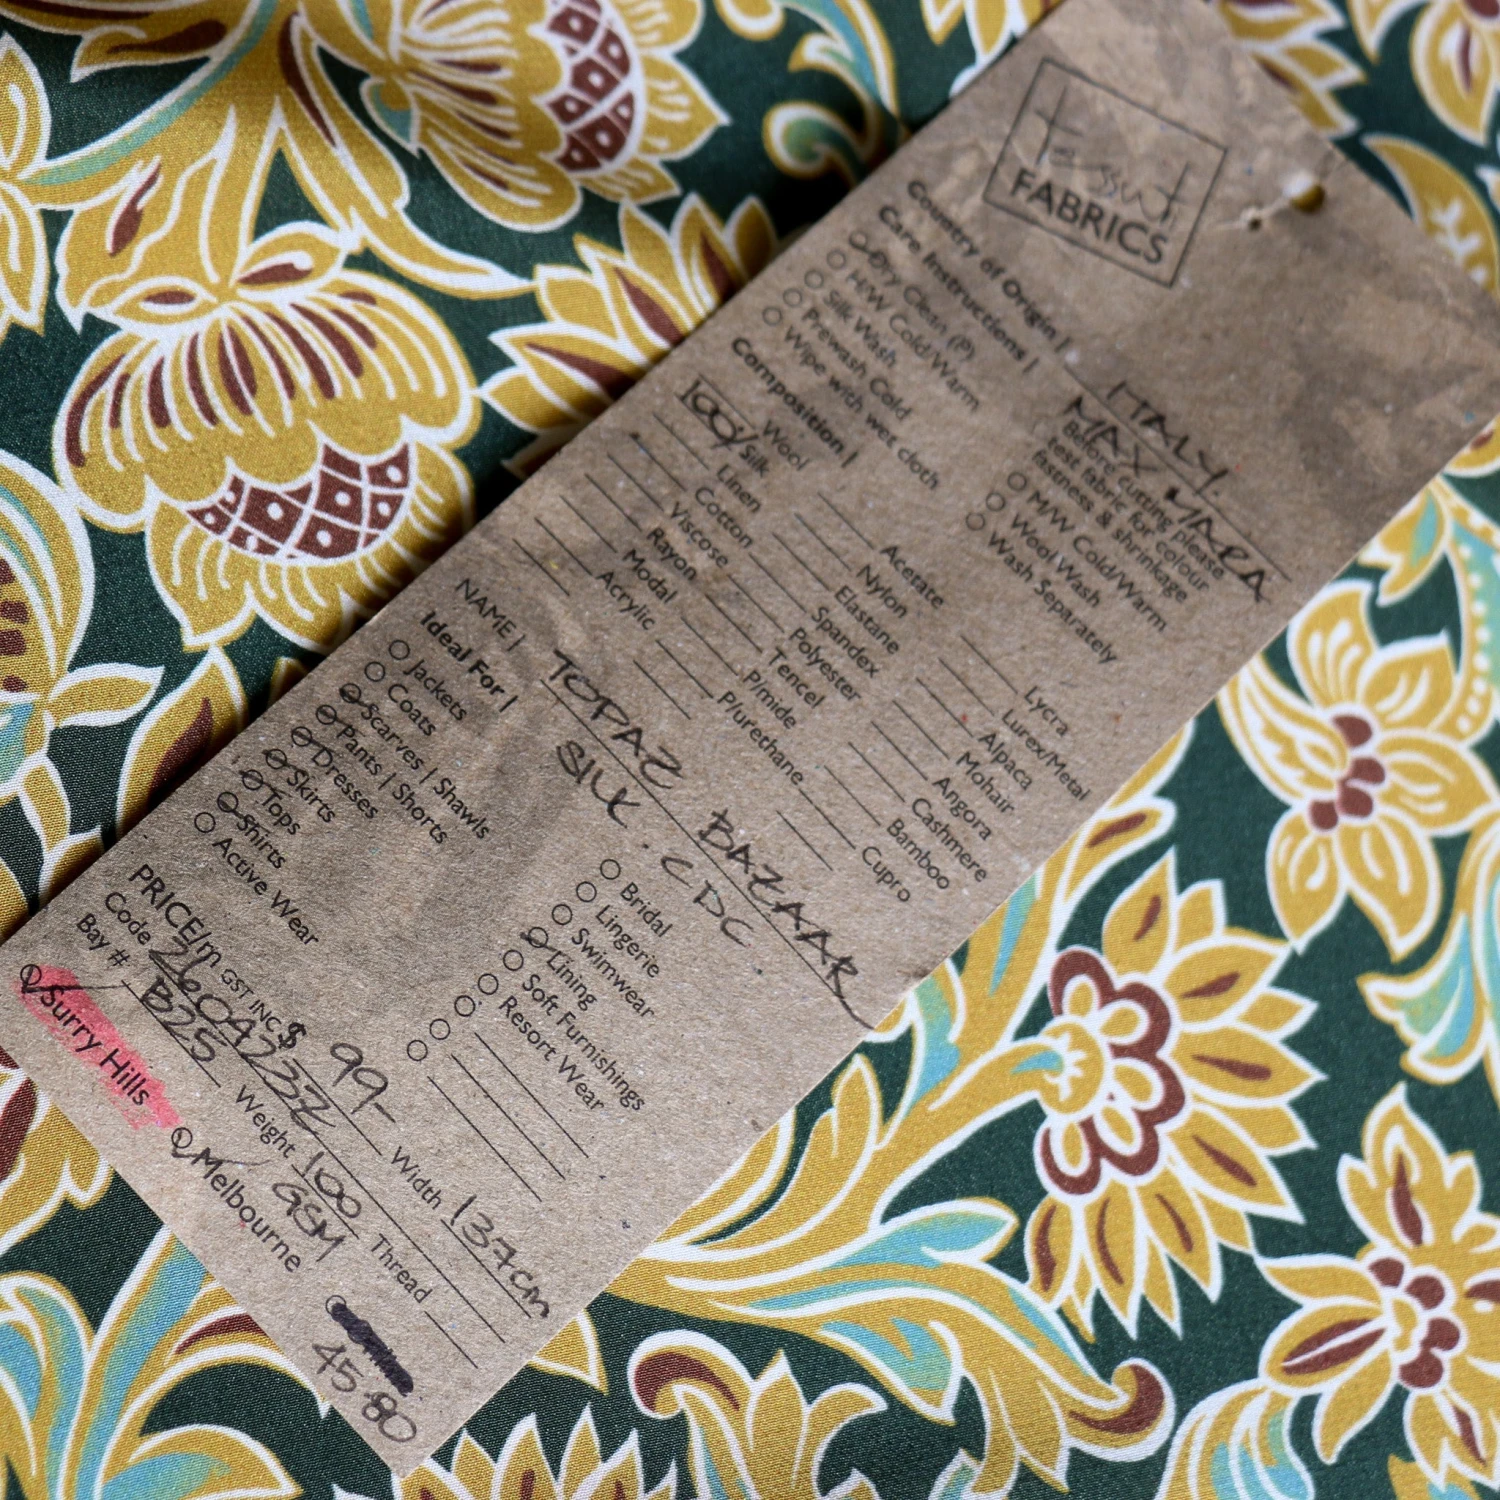 tessuti
FABRICS
Country of Origin | ITALY.
Care Instructions | MAX MARA
Dry Clean (P)
H/W Cold/Warm
Silk Wash
Prewash Cold
Wipe with wet cloth
Before cutting please
test fabric for colour
fastness & shrinkage
M/W Cold/Warm
Wool Wash
Wash Separately
Composition |
Wool
100% Silk
Linen
Cotton
Viscose
Rayon
Modal
Acrylic
Acetate
Nylon
Elastane
Spandex
Polyester
Tencel
P/mide
P/urethane
Lycra
Lurex/Metal
Alpaca
Mohair
Angora
Cashmere
Bamboo
Cupro
NAME | TOPAZ BAZAAR
SILK. CDC
Ideal For |
Jackets
Coats
Scarves | Shawls
Pants | Shorts
Dresses
Skirts
Tops
Shirts
Active Wear
Bridal
Lingerie
Swimwear
Lining
Soft Furnishings
Resort Wear
PRICE/m GST INC $ 99- Width 137cm
Code 2604232 Weight 100 GSM Thread
Bay # B25
Surry Hills Melbourne
45.80